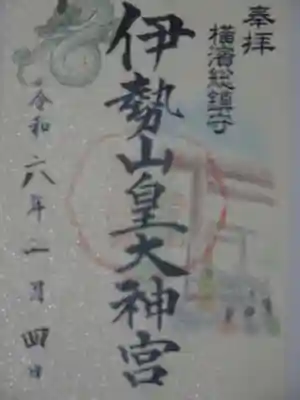 奉拝
横濱総鎮守
伊勢山皇大神宮
令和六年一月四日